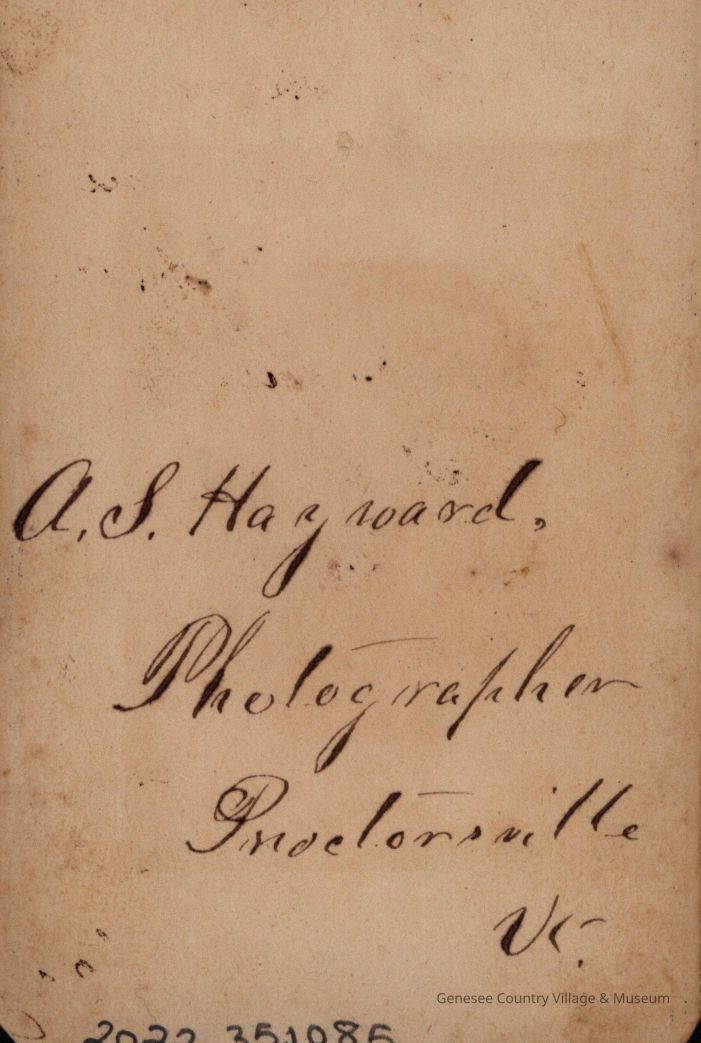 A. S. Hayward,
Photographer
Proctorsville
Vt.
Genesee Country Village & Museum
2022.351086